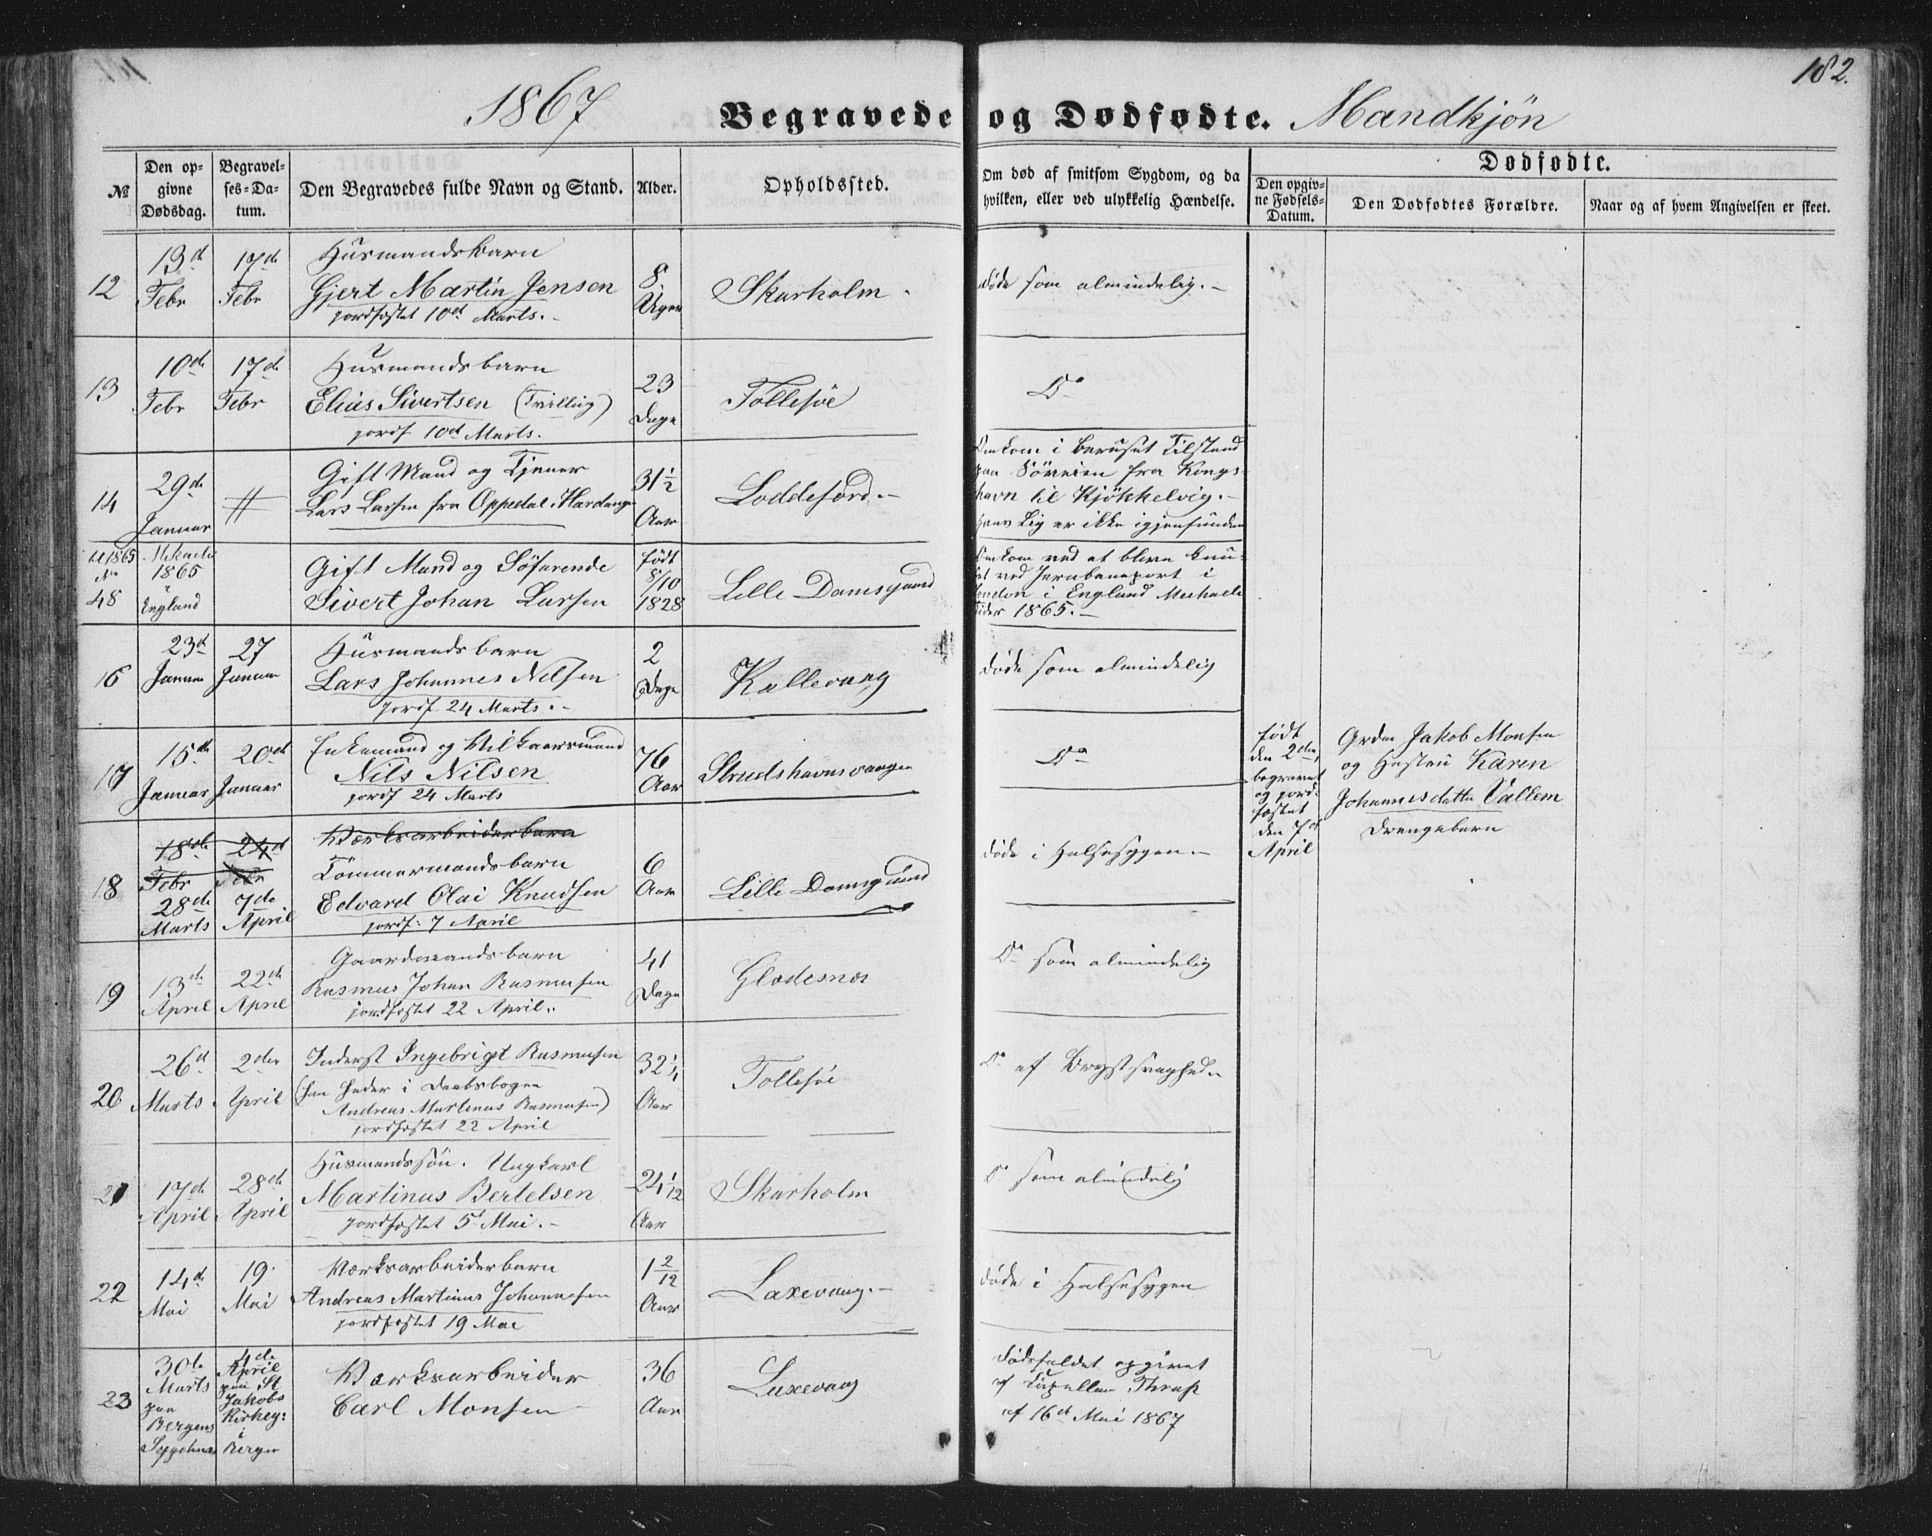 1867 Begravede og Dødfødte. Mandkjön 182.
№
Den opgivne Dødsdag.
Begravelses-Datum.
Den Begravedes fulde Navn og Stand.
Alder.
Opholdssted.
Om død af smitsom Sygdom, og da hvilken, eller ved ulykkelig Hændelse.
Dødfødte.
Den opgivne Fødsels-Datum.
Den Dødfødtes Forældre.
Naar og af hvem Angivelsen er skeet.
12
13d Febr
17de Febr
Husmandsbarn
Gjert Martin Jensen
jordfæstet 10d Marts.
8. Uger
Skarholm.
døde som almindelig.
13
10de Febr
17de Febr
Husmandsbarn
Elias Sivertsen (Tvilling)
jordf 10d Marts.
23 Dage
Tollesöe
Do
14
29de Januar
#
Gift Mand og Tjener
Lars Larsen fra Oppedal i Hardanger
31½ Aar
Loddefjord.
Omkom i beruset Tilstand
paa Söveien fra Kongs-
havn til Kjökkelvig.
Hans Lig er ikke igjenfunden
til 1865 No 48
1865 i England
Gift Mand og Söfarende
Sivert Johan Larsen
født 8/10 1828
Lille Damsgaard
Omkom ved at blive knu-
st ved Jernbaneport i
London i England Michaeli
Tider 1865.
16
23d Januar
27 Januar
Husmandsbarn
Lars Johannes Nilsen
jordf 24 Marts.
2 Dage
Kallevaag
døde som almindelig
17
15de Januar
20de Januar
Enkemand og Vilkaarsmand
Nils Nilsen
jordf 24 Marts
76 Aar
Strudshavnsvaagen
Do
født den 2den, begravet og jordfæstet den 7d April
Jakob Monsen
og Hustru Karen
Johannesdatter Vallem
Drengebarn
18
18de Febr
24d Febr
28de Marts
7de April
Værksarbeiderbarn
Tömmermandsbarn
Edvard Olai Knudsen
jordf: 7 April
6 Aar
Lille Damsgaard
døde i Halsesygen.
19
13de April
22de April
Gaardmandsbarn
Rasmus Johan Rasmusen
jordfæstet 22 April.
41 Dage
Gladesnes
Do som almindelig
20
26d Marts
2den April
Inderst Ingebrigt Rasmusen
(han heder i Daabsbogen
Andreas Martinus Rasmusen)
jordfæstet 22 April
32¼ Aar
Tollesöe
Do af Brystsvaghed
21
17de April
28de April
Husmandssön. Ungkarl
Martinus Bertelsen
jordfæstet 5d Mai.
24 1/12 Aar
Skarholm
Do som almindelig
22
14de Mai
19 Mai
Værksarbeiderbarn
Andreas Martinus Johannesen
jordfæstet 19 Mai
1 2/12 Aar
Laxevaag.
døde i Halsesygen
23
30te Marts paa Bergens Sygehus
4de April paa St Jakobs Kirkeg: i Bergen
Værksarbeider
Carl Monsen
36 Aar
Laxevaag
Dödsfaldet opgivet
af Kapellan Thrap
af 16de Mai 1867